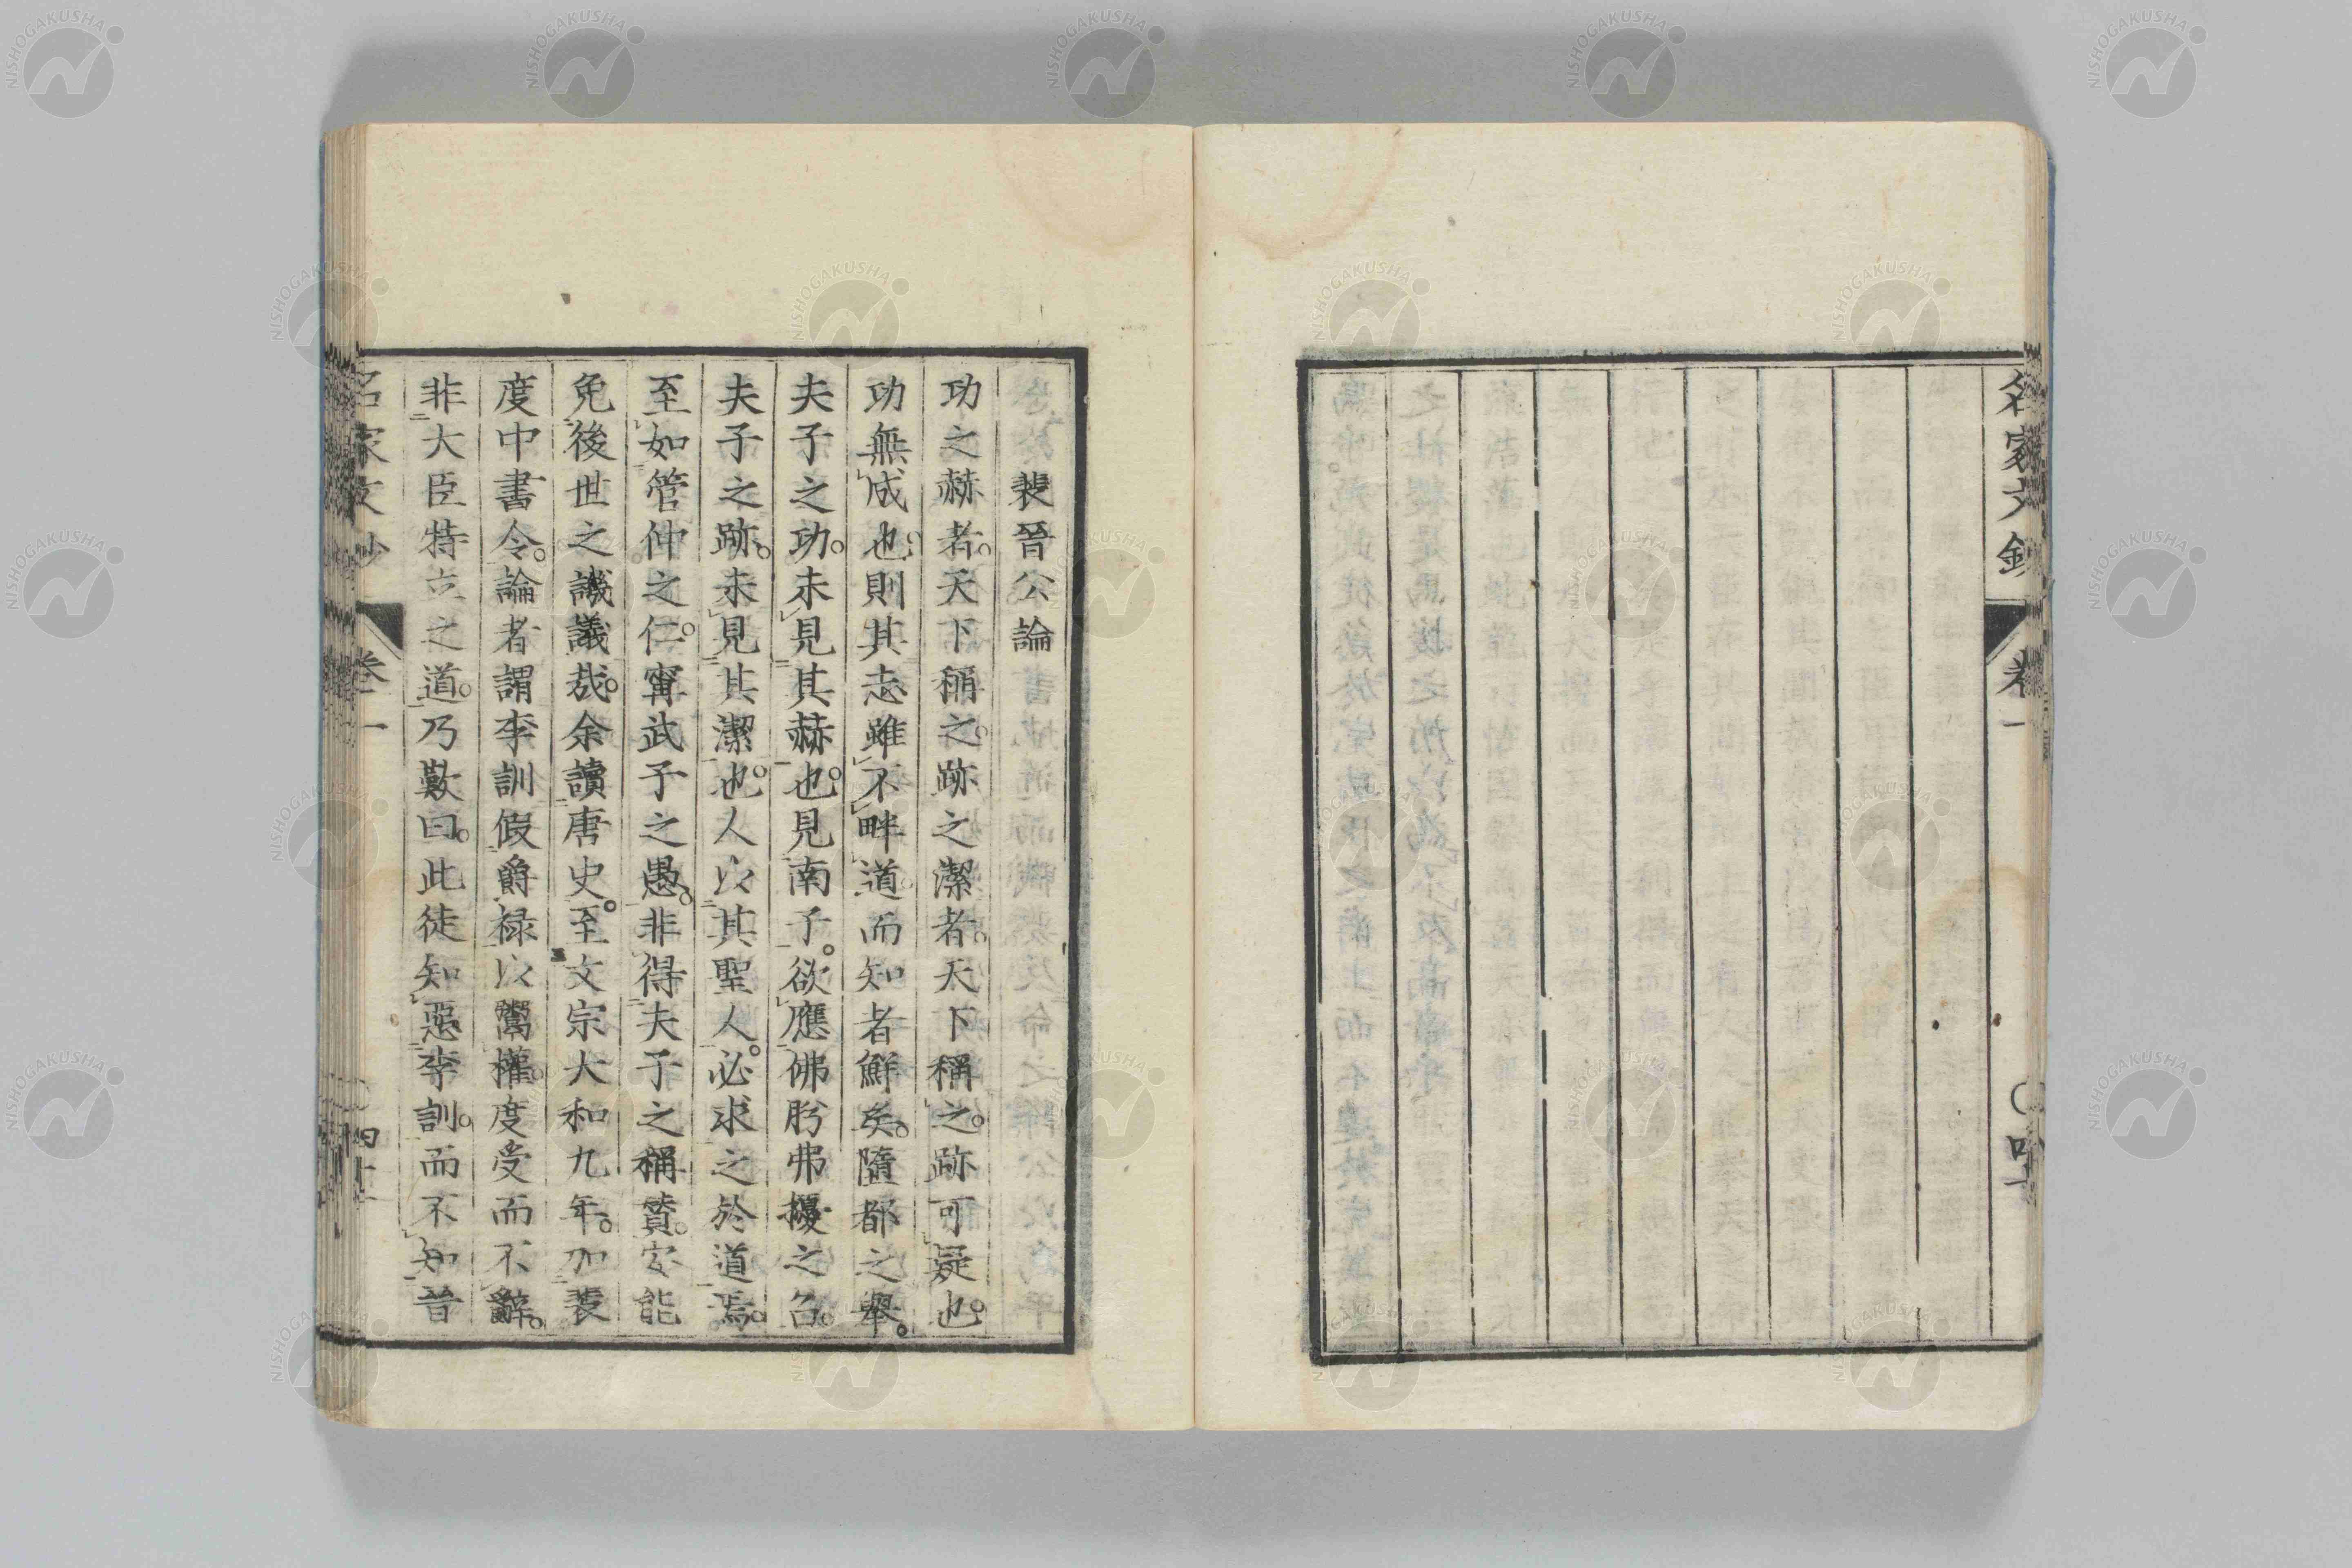 名家文鈔 卷一
裴晉公論
功之赫者。天下稱之。跡之潔者。天下稱之。跡可疑也。
功無成也。則其志雖不畔道。而知者鮮矣。隨都之舉。
夫子之功。未見其赫也。見南子。欲應佛肸弗擾之召。
夫子之跡。未見其潔也。人以其聖人。必求之於道焉。
至如管仲之仁。甯武子之愚。非得夫子之稱贊。安能
免後世之譏議哉。余讀唐史。至文宗大和九年。加裴
度中書令。論者謂李訓假爵祿以鬻權。度受而不辭。
非大臣特立之道。乃歎曰。此徒知惡李訓。而不知晉
名家文鈔 卷一 四十一
NISHOGAKUSHA